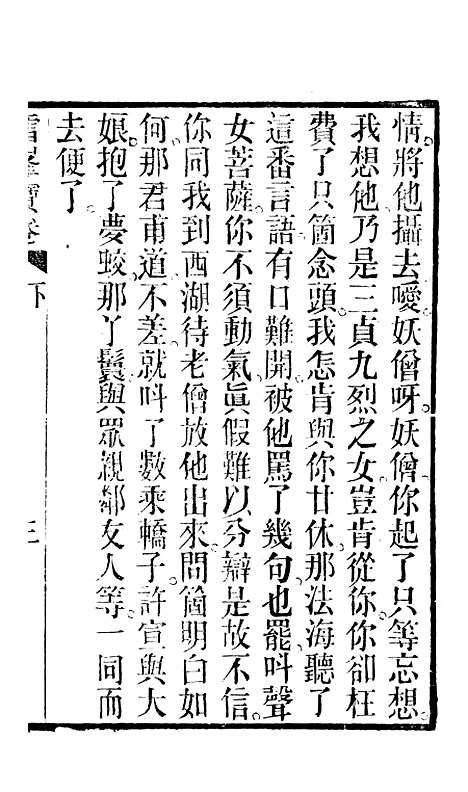 情。將他攝去。噯。妖僧呀。妖僧。你起了只等忘想。
我想他乃是三貞九烈之女。豈肯從你。你卻枉
費了只箇念頭。我怎肯與你甘休。那法海聽了
這番言語。有口難開。被他罵了幾句也罷。呌聲
女菩薩。你不須動氣。眞假難以分辯。是故不信。
你同我到西湖。待老僧放他出來。問箇明白如
何。那君甫道不差。就呌了數乘轎子。許宣與大
娘抱了夢蛟。那丫鬟與眾親鄰友人等。一同而
去便了。
雷峯寶卷 下 三